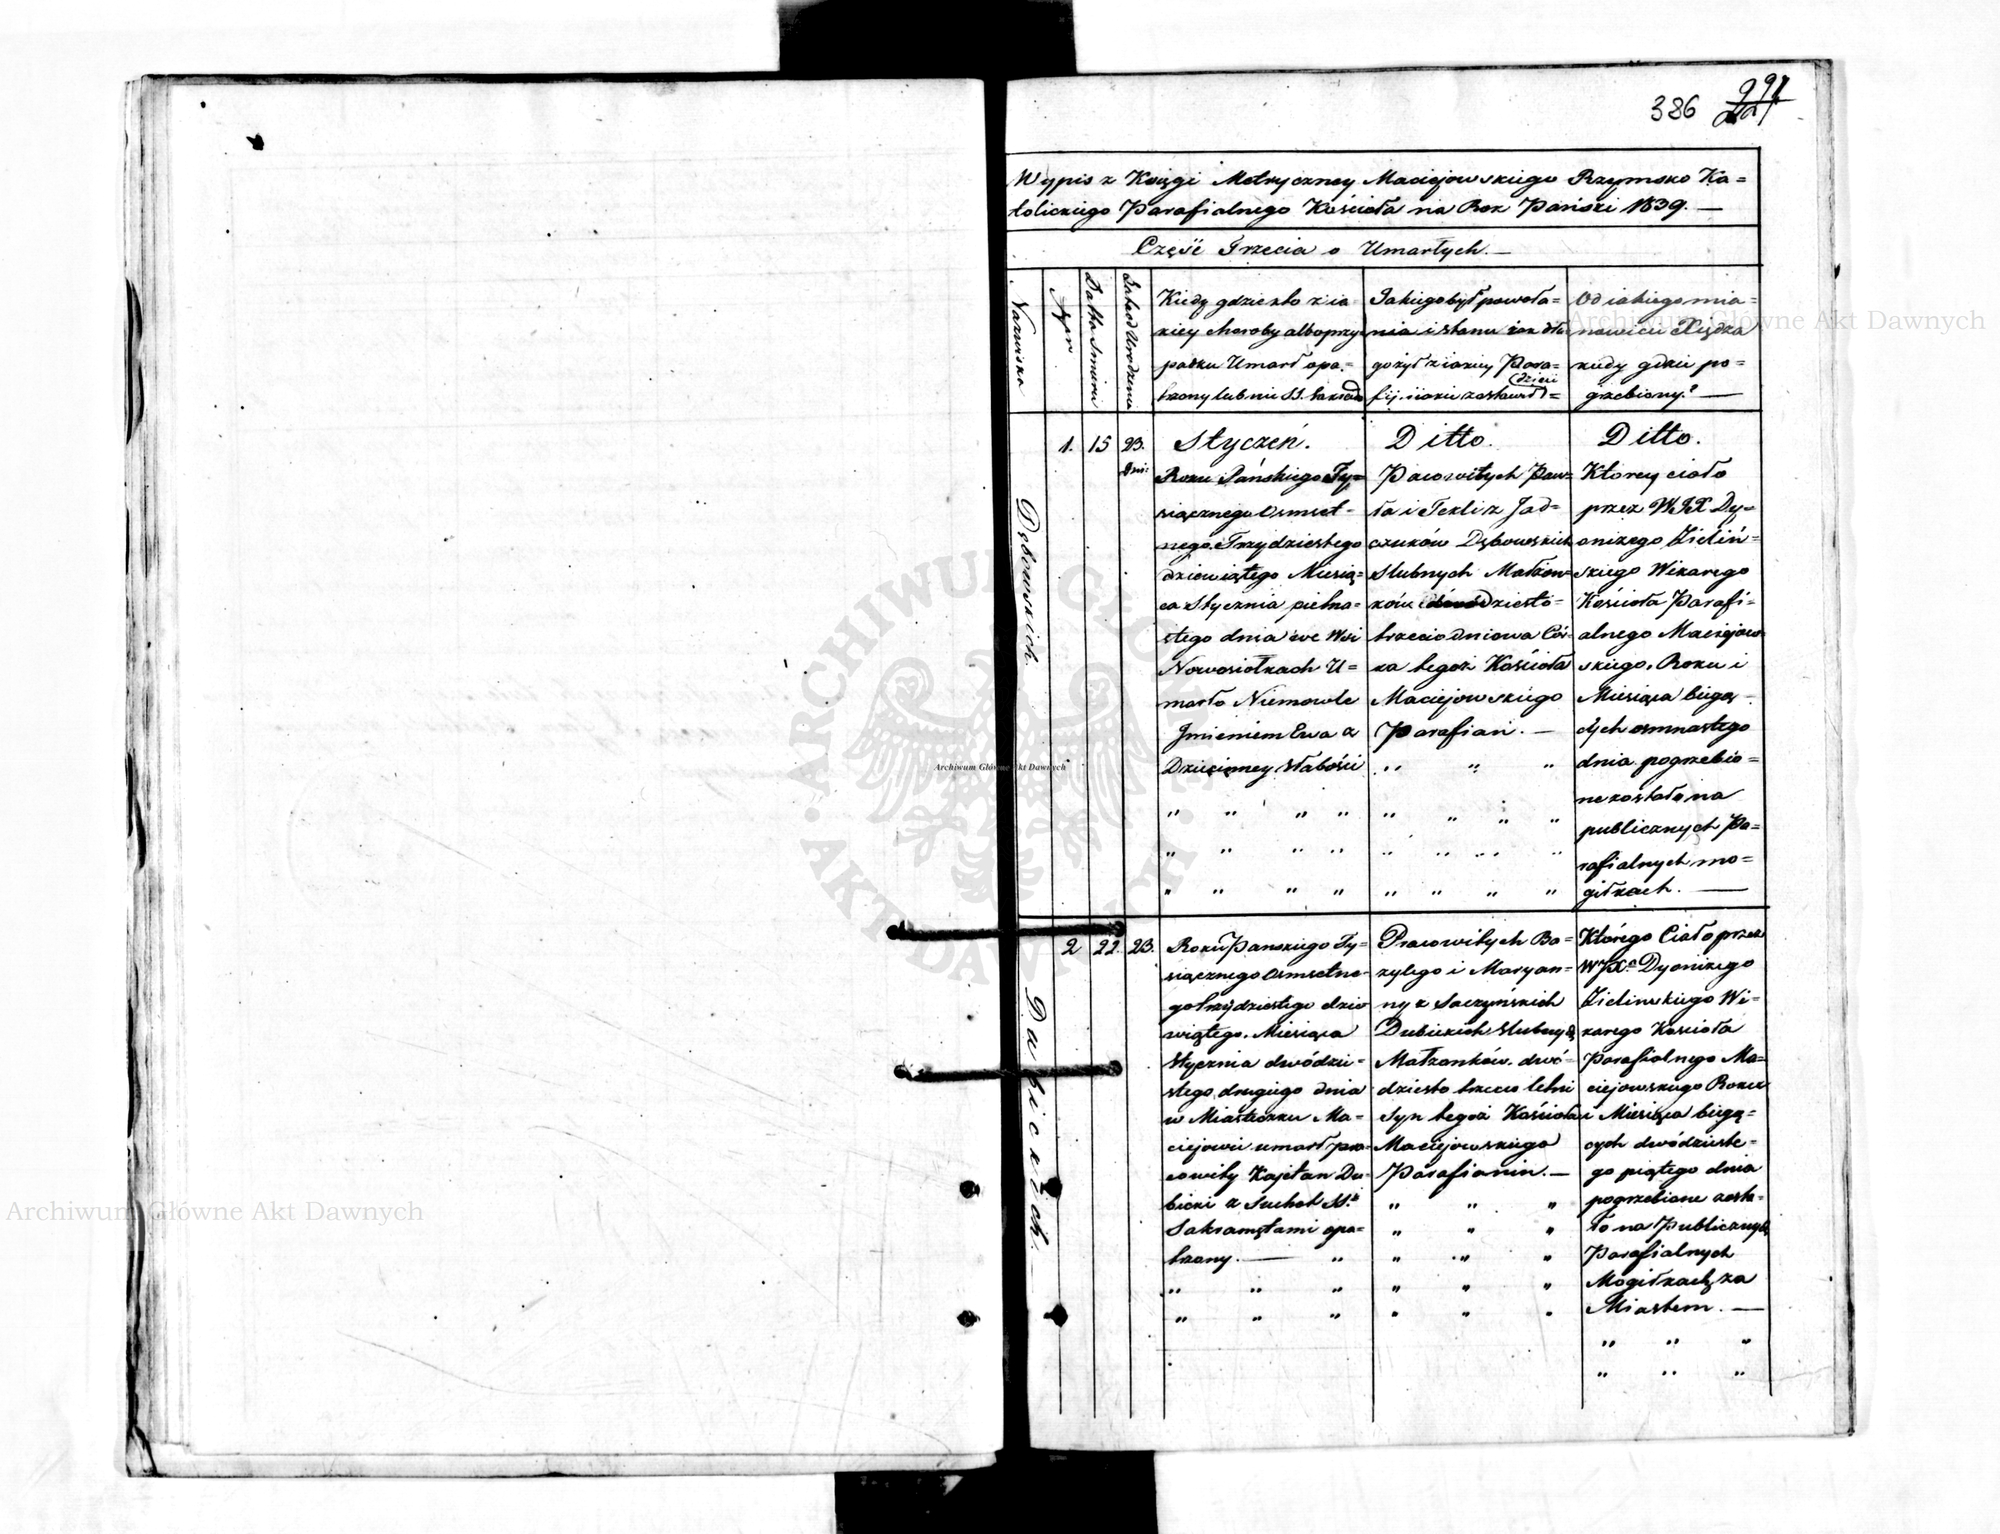 386 221
Wypis z Księgi Metryczney Maciejowskiego Rzymsko Ka=
tolickiego Parafialnego Kościoła na Rok Pański 1839. —
Część Trzecia o Umarłych. —
Nazwisko
Nr
Datta Smierci
Kiedy gdzie kto z ia
kiey choroby albo przy
padku Umarł opa=
trzony lub nie SS. Sakra
Jakiego był powoła=
nia i stanu iak dłu
go żył z iakiey Para=
fij. i iakie zostawił=
dzieci
Od iakiego mia=
nowicie Xiędza
kiedy gdzie po=
grzebiony? —
Dębowskich.
1. 15 23.
Dni:
Styczeń.
Roku Pańskiego Ty=
siącznego Osmset=
nego Trzydziestego
dziewiątego Miesią=
ca Stycznia pietna=
stego dnia we Wsi
Nowosiołkach U=
marło Niemowle
Imieniem Ewa z
Dziecinney słabości
Ditto.
Pracowitych Paw=
ła i Tekli z Jad=
czuków Dębowskich
Slubnych Małżon=
ków dwódziesto=
trzeciodniowa Cór=
ka tegoż Kościoła
Maciejowskiego
Parafian. —
Ditto.
Ktorey ciało
przez WJX Dy=
onizego Zieliń=
skiego Wikarego
Kościoła Parafi=
alnego Maciejow=
skiego, Roku i
Miesiąca bieżą
cych osmnastego
dnia pogrzebio=
ne zostało na
publicznych Pa=
rafialnych mo=
giłkach. —
Dubickich. —
2 22. 23.
Roku Panskiego Ty=
siącznego Osmsetne=
go trzydziestego dzie
wiątego. Miesiąca
Stycznia dwódzie=
stego drugiego dnia
w Miasteczku Ma=
ciejowie umarł pra=
cowity Kajetan Du=
bicki z Suchot SS.
Sakramętami opa=
trzony. —
Pracowitych Ba=
zylego i Maryan=
ny z Saczyńskich
Dubickich slubnych
Małżonków. dwó=
dziesto trzecio letni
Syn tegoż Kościoła
Maciejowskiego
Parafianin. —
Którego Ciało przez
WJXa Dyonizego
Zielinskiego Wi=
karego Koscioła
Parafialnego Ma=
ciejowskiego Roku
i Miesiąca bieżą=
cych dwódzieste=
go piątego dnia
pogrzebione zosta=
ło na Publicznych
Parafialnych
Mogiłkach za
Miastem. —
Archiwum Główne Akt Dawnych
Archiwum Główne Akt Dawnych
Archiwum Główne Akt Dawnych
ARCHIWUM GŁÓWNE
AKT DAWNYCH